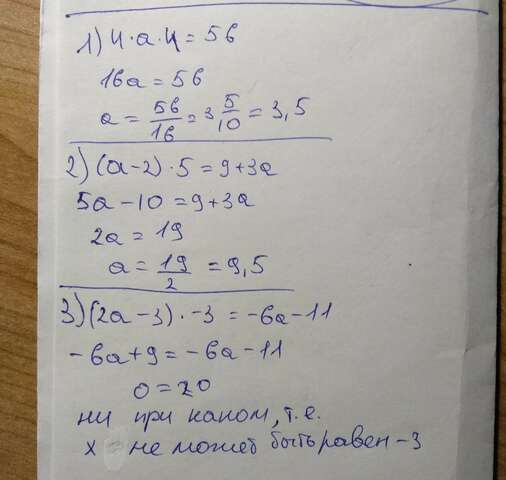 1) 4·a·4 = 56
16a = 56
a = 56/16 = 3 5/10 = 3,5
2) (a-2)·5 = 9+3a
5a-10 = 9+3a
2a = 19
a = 19/2 = 9,5
3) (2a-3)·-3 = -6a-11
-6a+9 = -6a-11
0 = 20
ни при каком, т.е.
x не может быть равен -3